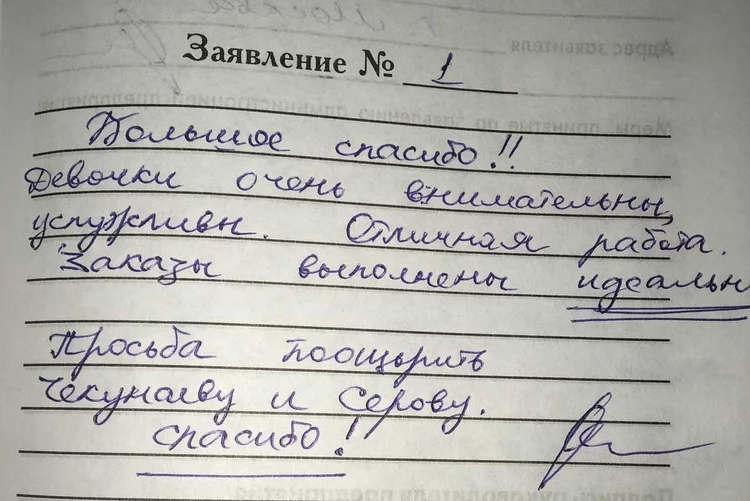 Заявление № 1
Большое спасибо!!
Девочки очень внимательны,
услужливы. Отличная работа.
Заказы выполнены идеальн
Просьба поощырить
Чекунаеву и Серову.
спасибо!